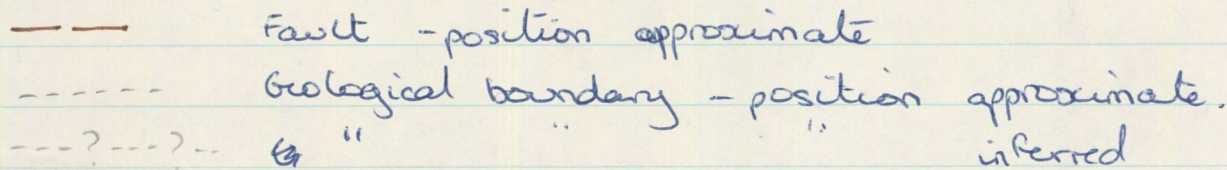 Fault - position approximate
Geological boundary - position approximate.
---?---?-- " " " inferred